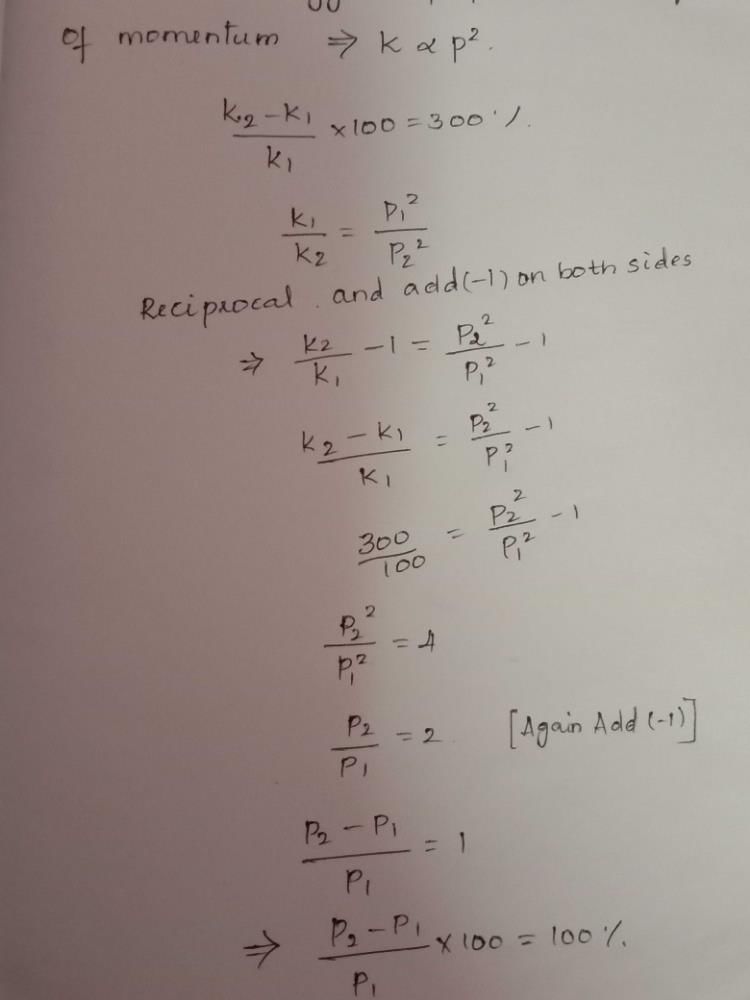 Of momentum ⇒ K ∝ p².
(K₂ - K₁)/K₁ × 100 = 300 %.
K₁/K₂ = P₁²/P₂²
Reciprocal . and add(-1) on both sides
⇒ K₂/K₁ - 1 = P₂²/P₁² - 1
(K₂ - K₁)/K₁ = P₂²/P₁² - 1
300/100 = P₂²/P₁² - 1
P₂²/P₁² = 4
P₂/P₁ = 2 [Again Add (-1)]
(P₂ - P₁)/P₁ = 1
⇒ (P₂ - P₁)/P₁ × 100 = 100 %.